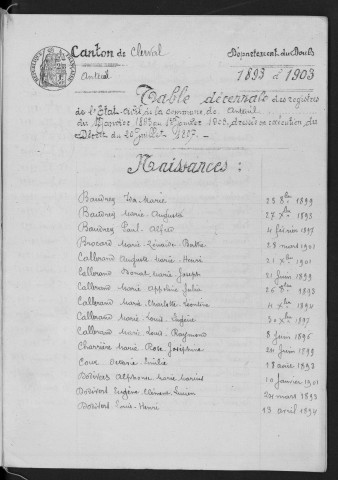 Canton de Clerval
Département du Doubs
Anteuil
1893 à 1903
Table décennale des registres
de l'Etat-civil de la commune de Anteuil
du 1er janvier 1893 au 1er janvier 1903, dressée en exécution du
Décret du 20 juillet 1807.
Naissances :
Baudrey Ida Marie 28 8bre 1899
Baudrey Marie Augusta 27 Xbre 1893
Baudrey Paul Alfred 4 février 1897
Brocard Marie Zénaïde Berthe 28 mars 1901
Callerand Auguste Marie Henri 21 Xbre 1901
Callerand Marie Joseph 21 juin 1899
Callerand Marie Appoline Julie 26 8bre 1893
Callerand Marie Charlotte Léontine 4 Xbre 1894
Callerand Marie Louis Eugène 30 Xbre 1897
Callerand Marie Louis Raymond 8 juin 1896
Charrière Marie Rose Joséphine 24 juin 1899
Marie Emilie 18 août 1893
Alphonse Marie Marius 10 janvier 1901
Eugène Clément Lucien 20 mars 1893
Louis Henri 13 avril 1894